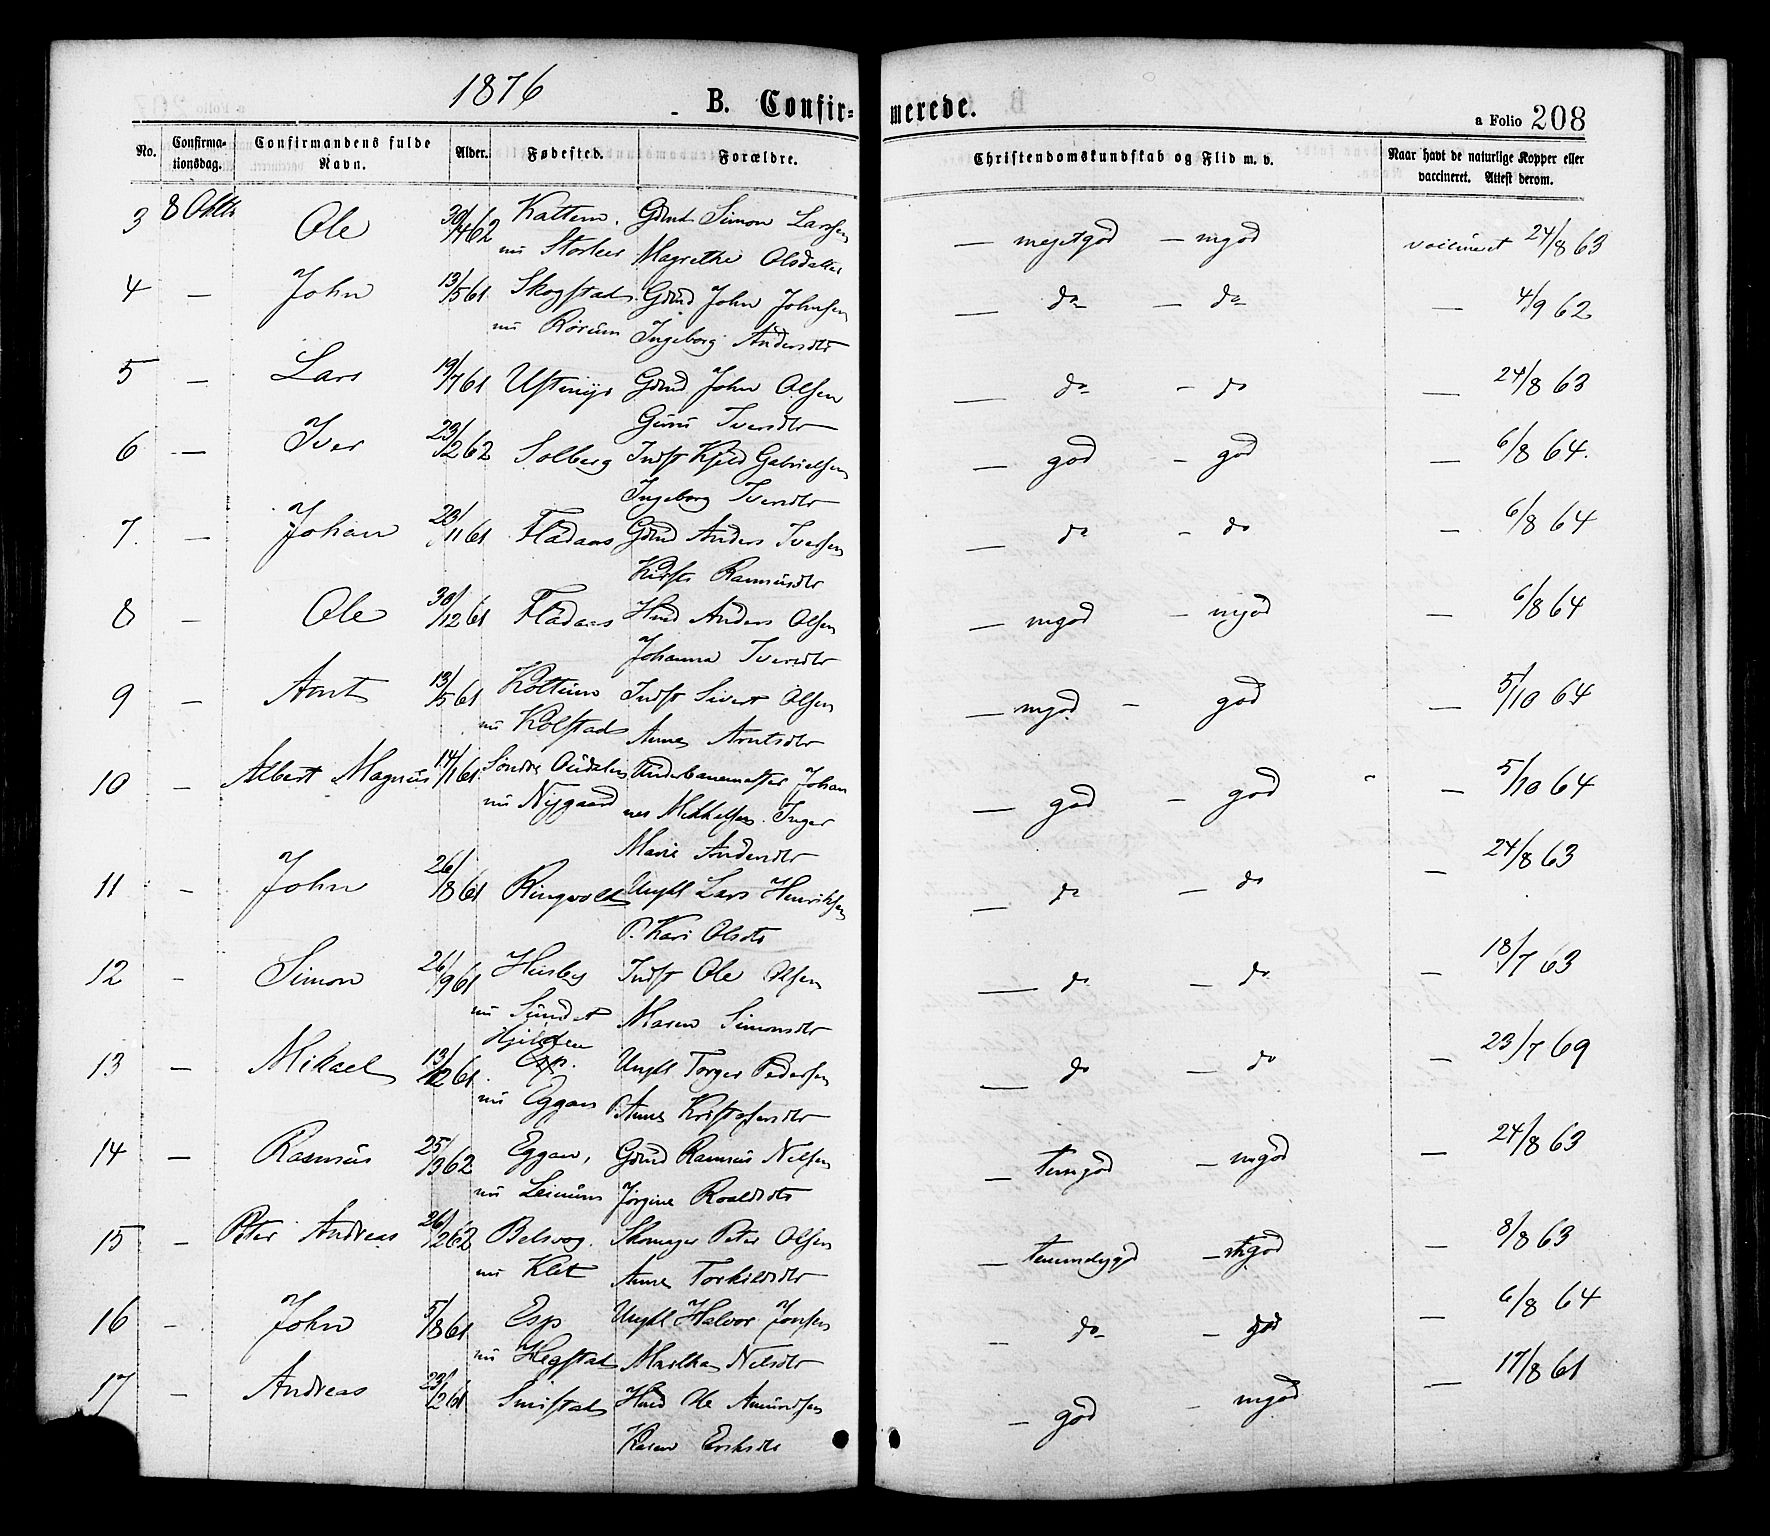 1876
B. Confir-
merede.
a Folio 208
No.
Confirma-
tionsdag.
Confirmandens fulde
Navn.
Alder.
Fødested.
Forældre.
Christendomskundskab og Flid m. v.
Naar havt de naturlige Kopper eller
vaccineret. Attest derom.
3 8 Okth Ole 30/4 62 Kattem. Gdmd Simon Larssen — megetgod — mgod vaccineret 24/8 63
nu Storler Magrethe Olsdatter
4 — John 13/5 61 Skogstad Gdmd John Johnsen — do — do — 4/9 62
nu Rørum Ingeborg Andersdtr
5 — Lars 19/7 61 Ustenys Gdmd John Olsen — do — do — 24/8 63
Guru Iversdtr
6 — Iver 23/2 62 Solberg Indst Kjeld Gabrielsen — god — god — 6/8 64.
Ingeborg Iversdtr
7. — Johan 23/11 61 Flådaas Gdmd Anders Iversen — do — do — 6/8 64
Kirsti Rasmusdtr
8 — Ole 30/12 61 Flådaas Hmd Anders Olsen — mgod — mgod — 6/8 64
Johanna Iversdtr
9 — Arnt 13/5 61 Koltum Indst Sivert Olsen — mgod — god — 5/10 64
nu Kolstad Anne Arntsdtr
10 — Albert Magnus 14/1 61 Søndre Oudalen Underbanemester Johan — god — god — 5/10 64
nu Nygaard nes Mikkelsen. Inger
Marie Andersdtr
11 — John 26/8 61 Ringvold Ungkl Lars Henriksen — do — do — 24/8 63
P. Kari Olsdtr
12 — Simon 26/9 61 Husby Indst Ole Olsen — do — do — 18/7 63
nu Sundet Maren Simonsdtr
Kjilden
13 — Mikael 13/12 61 Esp. Ungkl Torger Pedersen — do — do — 23/7 69
nu Eggan P. Anne Kristofersdtr
14 — Rasmus 25/3 62 Eggan, Gdmd Rasmus Nilsen — temgod — mgod — 24/8 63
nu Leinum Jørgine Roaldsdtr
15 — Peter Andreas 26/2 62 Belsvog. Skomager Peter Olsen — temmeliggod — mgod — 8/8 63
nu Klet Anne Torkildsdtr
16 — John 5/8 61 Esp Ungkl Halvor Jonsen — do — god — 6/8 64
nu Hegstad Martha Nilsdtr
17 — Andreas 23/2 61 Smistad Hmd Ole Amundsen — god — mgod — 17/8 61
Karen Eriksdtr